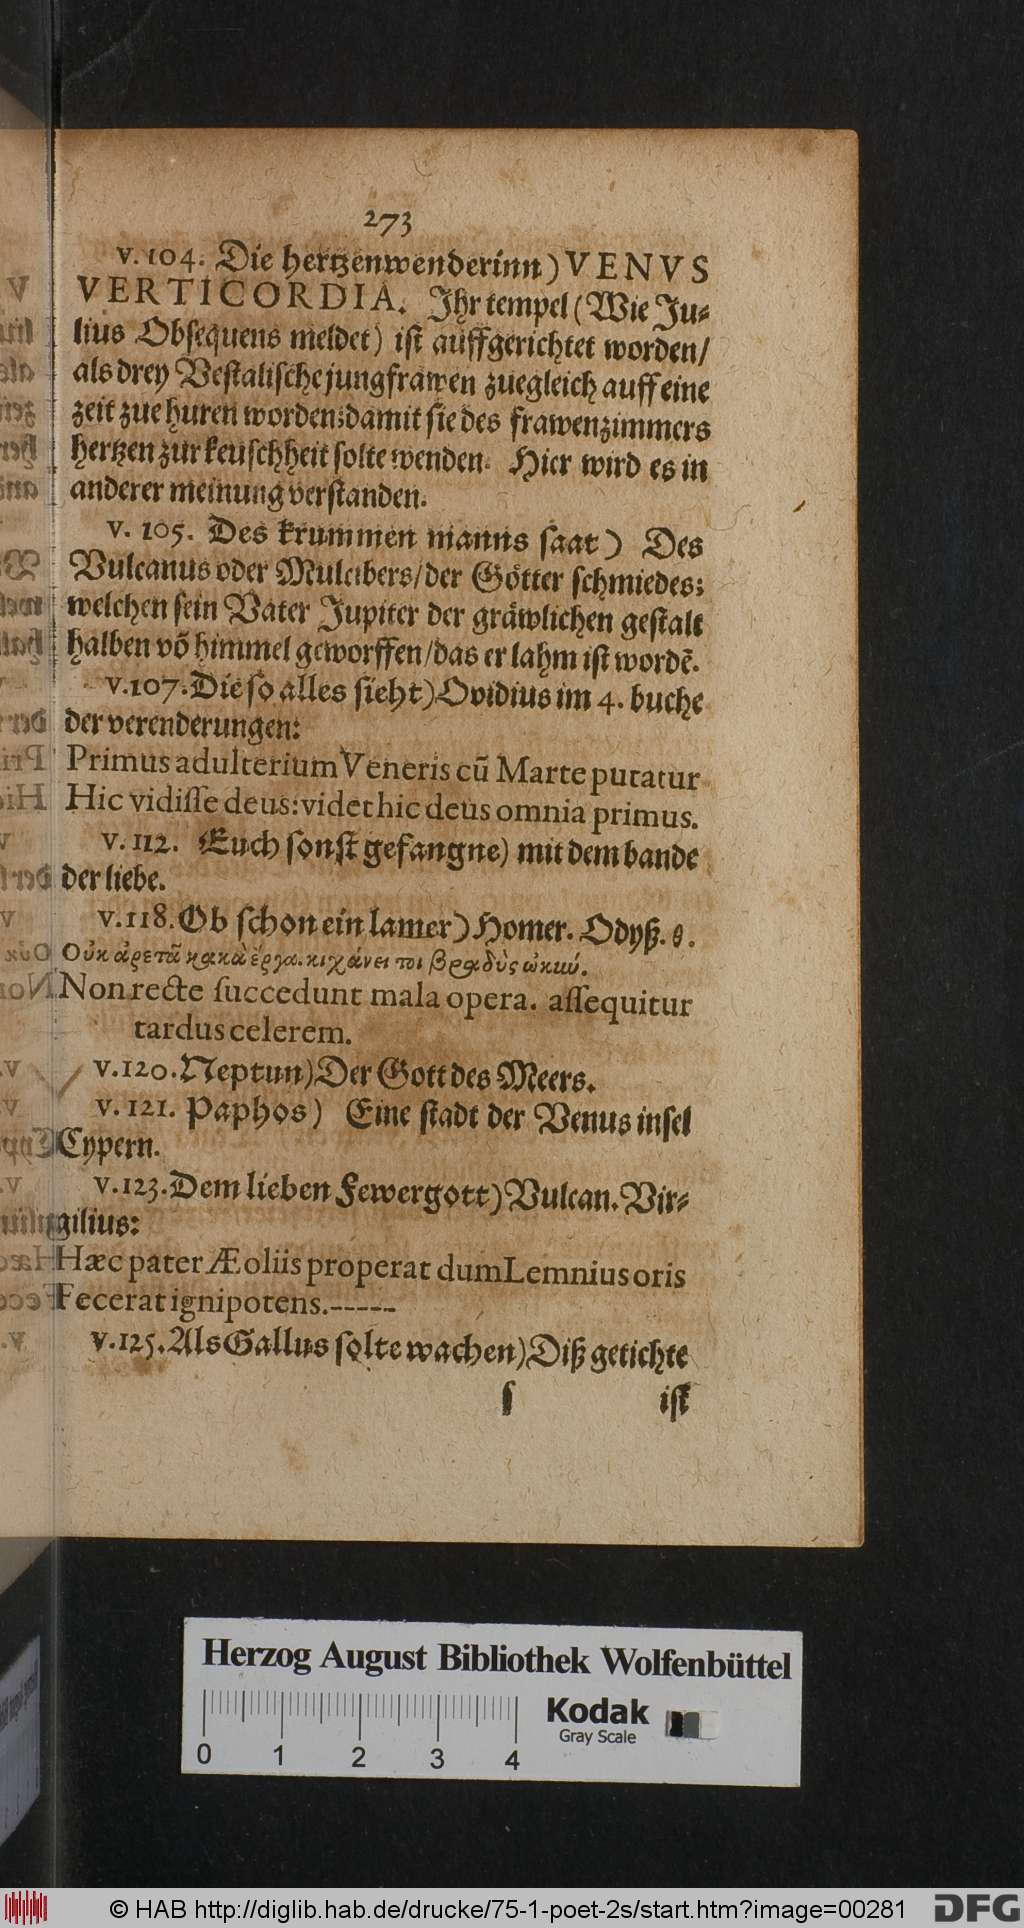 273
v. 104. Die hertzenwenderinn) VENVS
VERTICORDIA. Ihr tempel (Wie Ju⸗
lius Obsequens meldet) ist auffgerichtet worden/
als drey Vestalische jungfrawen zuegleich auff eine
zeit zue huren worden; damit sie des frawenzimmers
hertzen zur keuschheit solte wenden. Hier wird es in
anderer meinung verstanden.
v. 105. Des krummen manns saat) Des
Vulcanus oder Mulcibers/ der Götter schmiedes;
welchen sein Vater Jupiter der gräwlichen gestalt
halben võ himmel geworffen/ das er lahm ist wordẽ.
v. 107. Die so alles sieht) Ovidius im 4. buche
der verenderungen:
Primus adulterium Veneris cũ Marte putatur
Hic vidisse deus: videt hic deus omnia primus.
v. 112. Euch sonst gefangne) mit dem bande
der liebe.
v. 118. Ob schon ein lamer) Homer. Odyß. θ.
Οὐκ ἀρετᾶ κακὰ ἔργα. κιχάνει τοι βραδὺς ὠκύ.
Non recte succedunt mala opera. assequitur
tardus celerem.
v. 120. Neptun) Der Gott des Meers.
v. 121. Paphos) Eine stadt der Venus insel
Cypern.
v. 123. Dem lieben Fewergott) Vulcan. Vir⸗
gilius:
Hæc pater Æoliis properat dum Lemnius oris
Fecerat ignipotens.-----
v. 125. Als Gallus solte wachen) Diß getichte
s ist
Herzog August Bibliothek Wolfenbüttel
Kodak
Gray Scale
0 1 2 3 4
© HAB http://diglib.hab.de/drucke/75-1-poet-2s/start.htm?image=00281
DFG